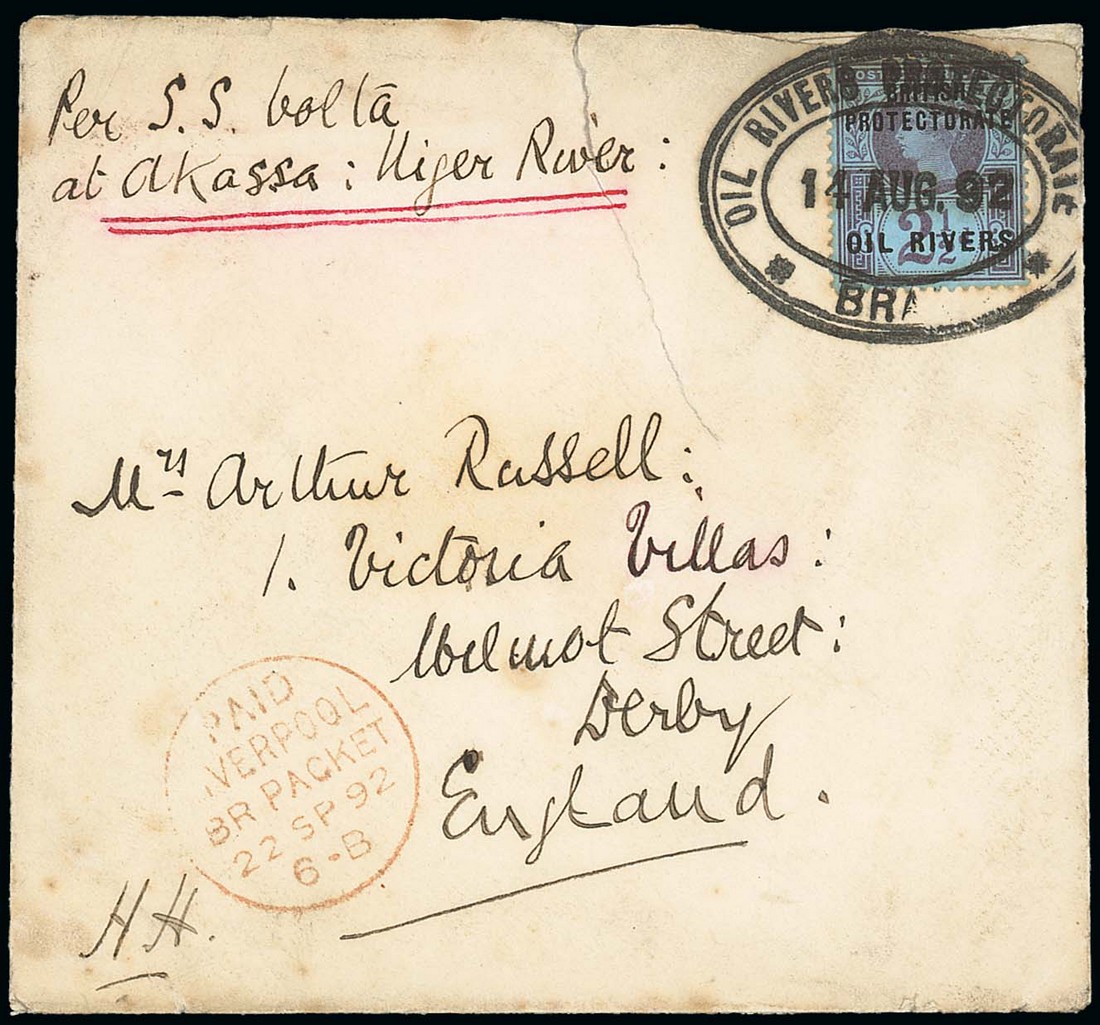 Per S.S. Volta
at Akassa: Niger River:
OIL RIVERS PROTECTORATE
BRITISH
PROTECTORATE
14 AUG. 92
OIL RIVERS
2½
BRA
Mrs Arthur Russell:
1. Victoria Villas:
Wilmot Street:
Derby
England.
PAID
IVERPOOL
BR PACKET
22 SP 92
6-B
H.H.